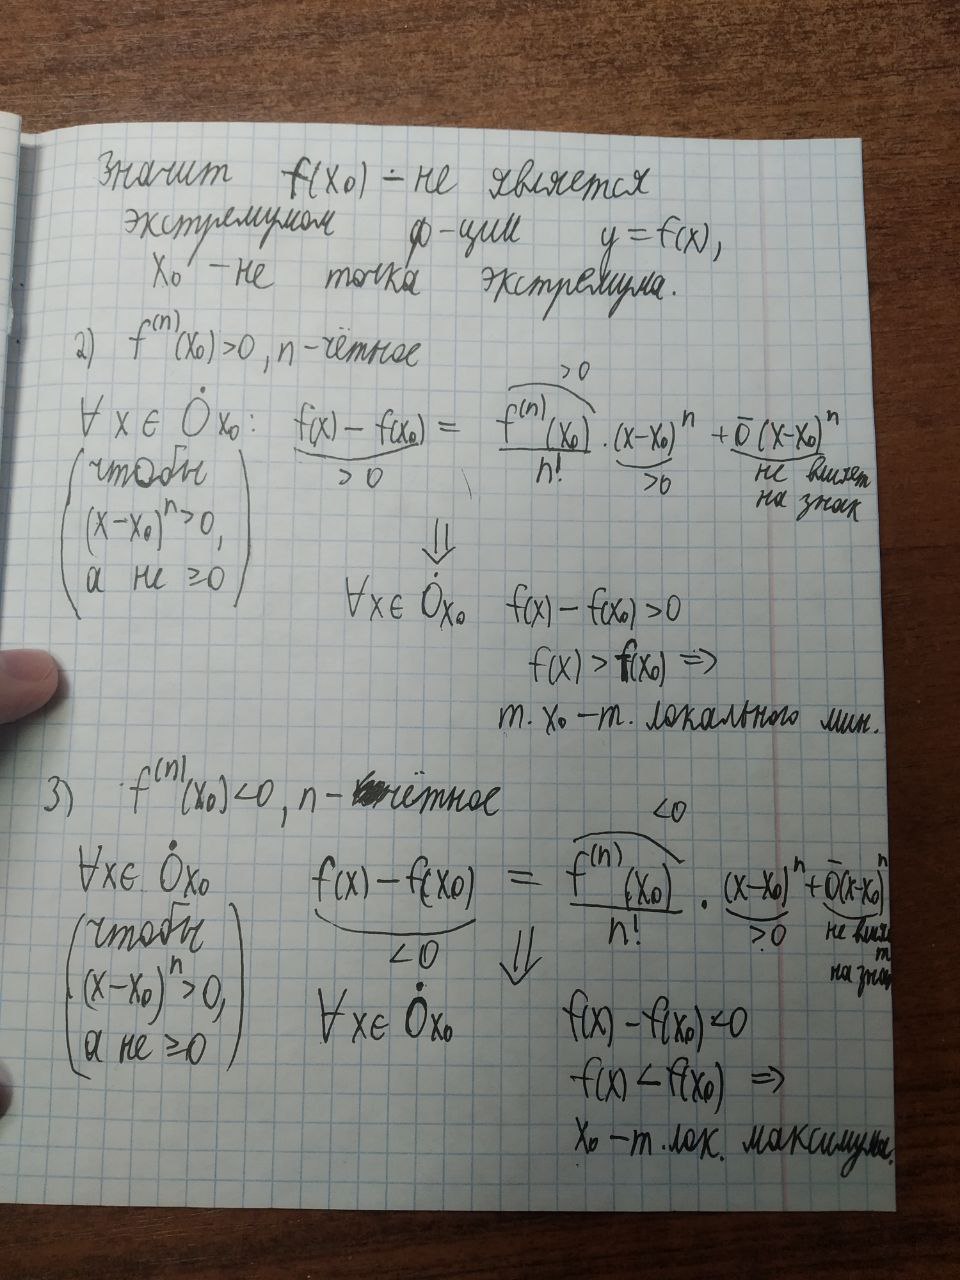 Значит f(x₀) – не является
экстремумом ф-ции y = f(x),
x₀ – не точка экстремума.
2) f⁽ⁿ⁾(x₀) > 0, n – чётное
> 0
∀ x ∈ Ȯx₀: f(x) – f(x₀) = f⁽ⁿ⁾(x₀)/n! · (x–x₀)ⁿ + ō(x–x₀)ⁿ
> 0 > 0 не влияет
на знак
(чтобы
(x–x₀)ⁿ > 0,
а не ≥ 0)
⇓
∀x ∈ Ȯx₀ f(x) – f(x₀) > 0
f(x) > f(x₀) ⇒
т. x₀ – т. локального мин.
3) f⁽ⁿ⁾(x₀) < 0, n – чётное
< 0
∀x ∈ Ȯx₀ f(x) – f(x₀) = f⁽ⁿ⁾(x₀)/n! · (x–x₀)ⁿ + ō(x–x₀)ⁿ
< 0 > 0 не влияет
на знак
(чтобы
(x–x₀)ⁿ > 0,
а не ≥ 0)
⇓
∀ x ∈ Ȯx₀ f(x) – f(x₀) < 0
f(x) < f(x₀) ⇒
x₀ – т. лок. максимума.